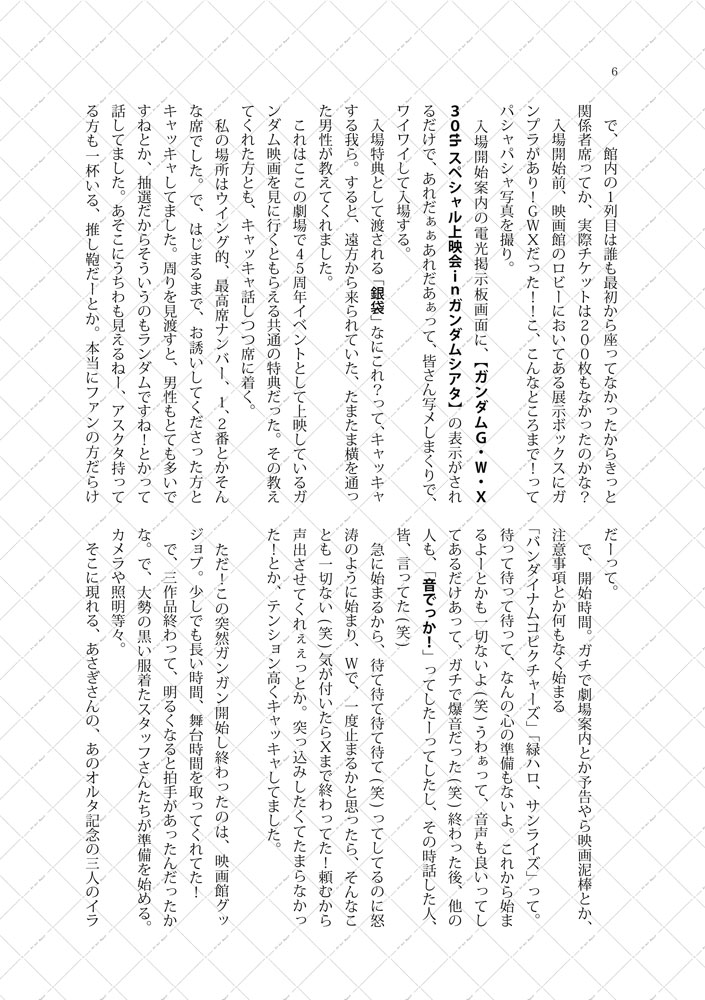 6
で、館内の1列目は誰も最初から座ってなかったからきっと
関係者席ってか、実際チケットは200枚もなかったのかな?
入場開始前、映画館のロビーにおいてある展示ボックスにガ
ンプラがあり!GWXだった!!こ、こんなところまで!って
パシャパシャ写真を撮り。
入場開始案内の電光掲示板画面に、【ガンダムG・W・X
30th スペシャル上映会inガンダムシアタ】の表示がされ
るだけで、あれだぁぁあれだあぁって、皆さん写メしまくりで、
ワイワイして入場する。
入場特典として渡される「銀袋」なにこれ?って、キャッキャ
する我ら。すると、遠方から来られていた、たまたま横を通っ
た男性が教えてくれました。
これはここの劇場で45周年イベントとして上映しているガ
ンダム映画を見に行くともらえる共通の特典だった。その教え
てくれた方とも、キャッキャ話しつつ席に着く。
私の場所はウイング的、最高席ナンバー、1、2番とかそん
な席でした。で、はじまるまで、お誘いしてくださった方と
キャッキャしてました。周りを見渡すと、男性もとても多いで
すねとか、抽選だからそういうのもランダムですね!とかって
話してました。あそこにうちわも見えるねー、アスクタ持って
る方も一杯いる、推し鞄だーとか。本当にファンの方だらけ
だーって。
で、開始時間。ガチで劇場案内とか予告やら映画泥棒とか、
注意事項とか何もなく始まる
「バンダイナムコピクチャーズ」「緑ハロ、サンライズ」って。
待って待って待って、なんの心の準備もないよ。これから始ま
るよーとかも一切ないよ(笑)うわぁって、音声も良いってし
てあるだけあって、ガチで爆音だった(笑)終わった後、他の
人も、「音でっか!」ってしたーってしたし、その時話した人、
皆、言ってた(笑)
急に始まるから、待て待て待て待て(笑)ってしてるのに怒
涛のように始まり、Wで、一度止まるかと思ったら、そんなこ
とも一切ない(笑)気が付いたらXまで終わってた!頼むから
声出させてくれぇぇっとか。突っ込みしたくてたまらなかっ
た!とか、テンション高くキャッキャしてました。
ただ!この突然ガンガン開始し終わったのは、映画館グッ
ジョブ。少しでも長い時間、舞台時間を取ってくれてた!
で、三作品終わって、明るくなると拍手があったんだったか
な。で、大勢の黒い服着たスタッフさんたちが準備を始める。
カメラや照明等々。
そこに現れる、あさぎさんの、あのオルタ記念の三人のイラ